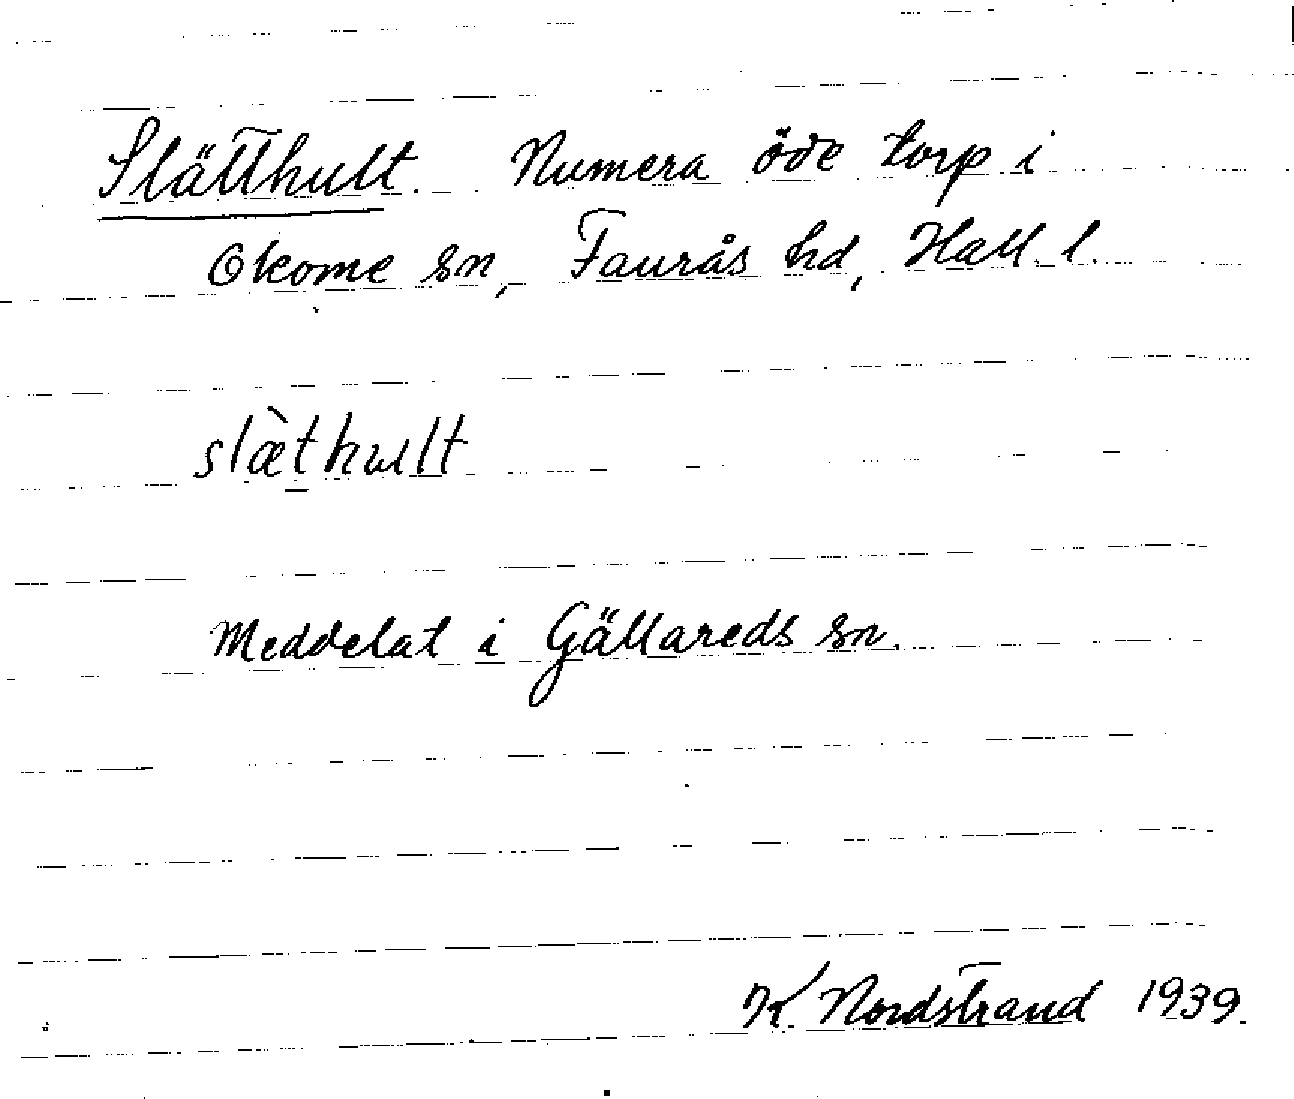 Slätthult. Numera öde torp i
Okome sn, Faurås hd, Hall. l.
slæ̀thult
Meddelat i Gällareds sn.
K. Nordstrand 1939.